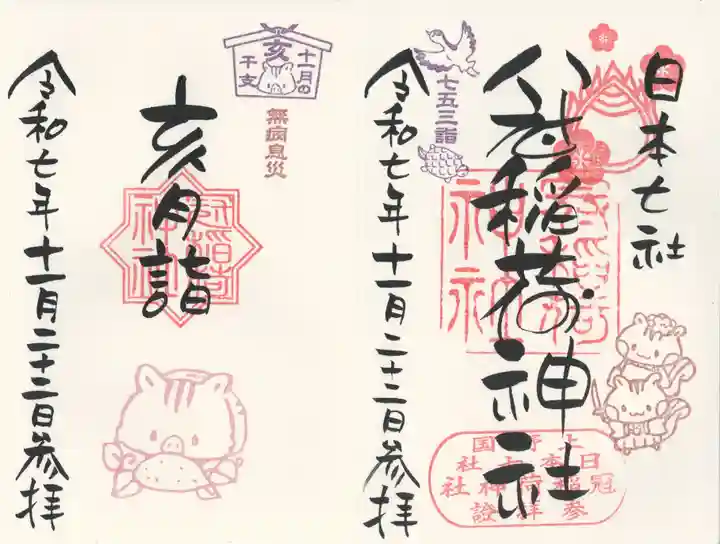 日本七社
冠稲荷神社
七五三詣
上野国
日本七社
冠稲荷神社
参拝證
令和七年十一月二十二日参拝
十一月の
亥
干支
無病息災
亥月詣
冠稲荷
神社
令和七年十一月二十二日参拝